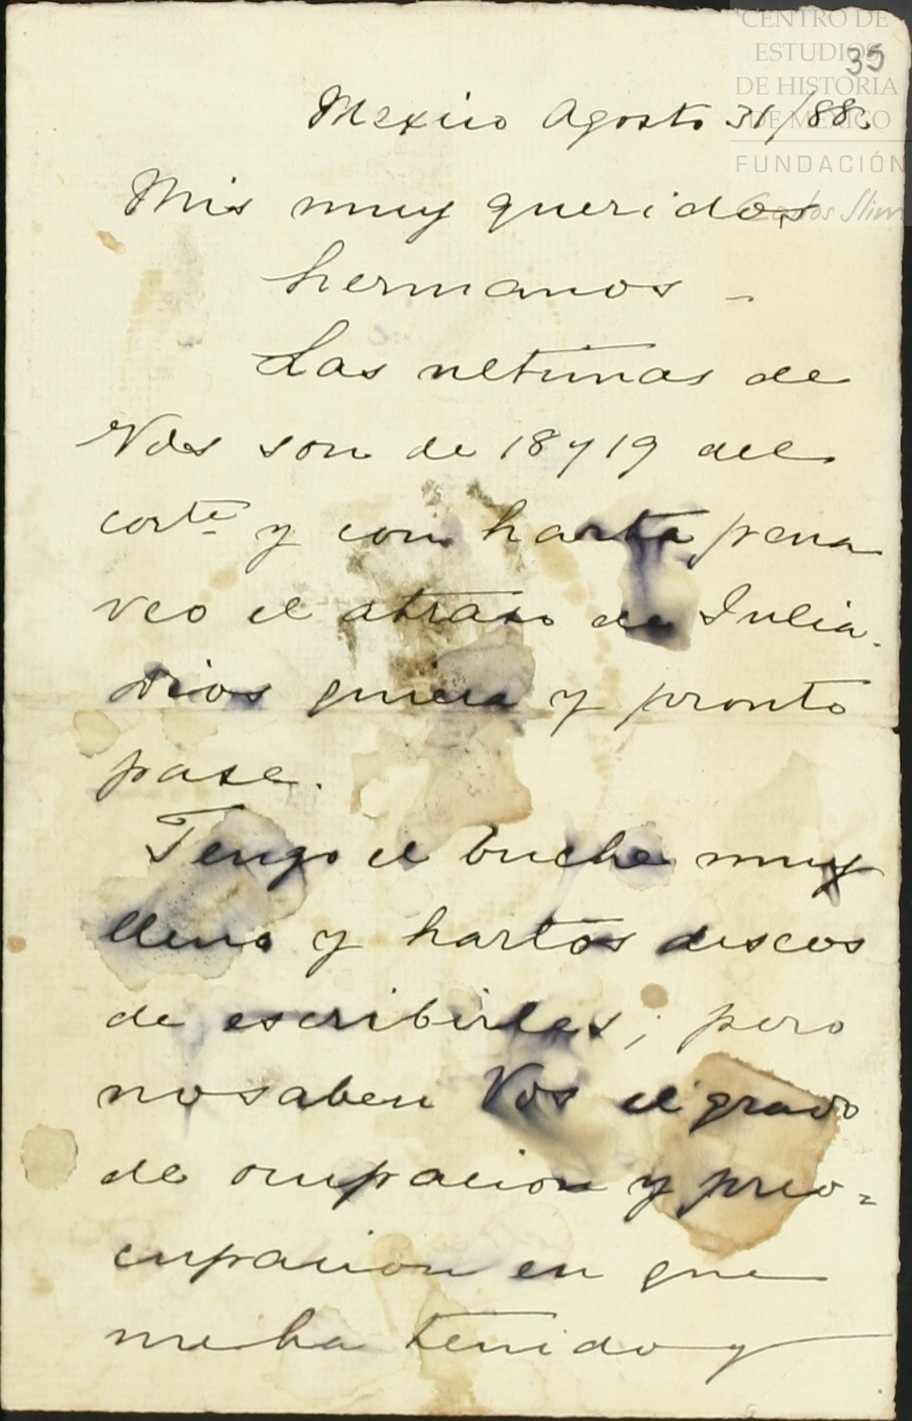 CENTRO DE
ESTUDIOS
DE HISTORIA
DE MÉXICO
FUNDACIÓN
Carlos Slim
35
Mexico Agosto 31/88.
Mis muy queridos
hermanos -
Las ultimas de
Vds son de 18 y 19 del
corte y con harta pena
veo el atraso de Julia.
Dios quiera y pronto
pase.
Tengo el buche muy
lleno y hartos deseos
de escribirles; pero
no saben Vds el grado
de ocupacion y preo=
cupacion en que
me ha tenido y